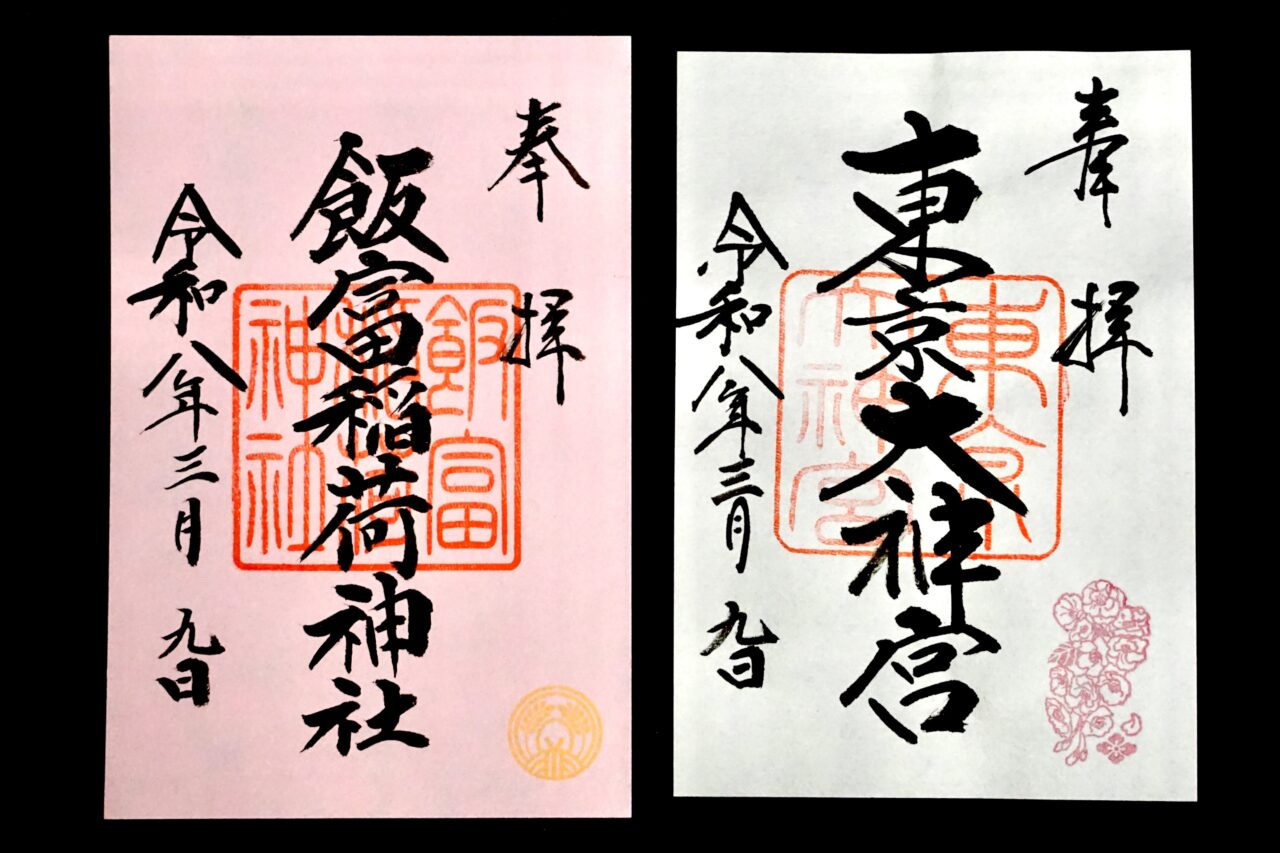 奉拝
飯富稲荷神社
飯富稲荷神社
令和八年三月九日
奉拝
東京大神宮
東京大神宮
令和八年三月九日